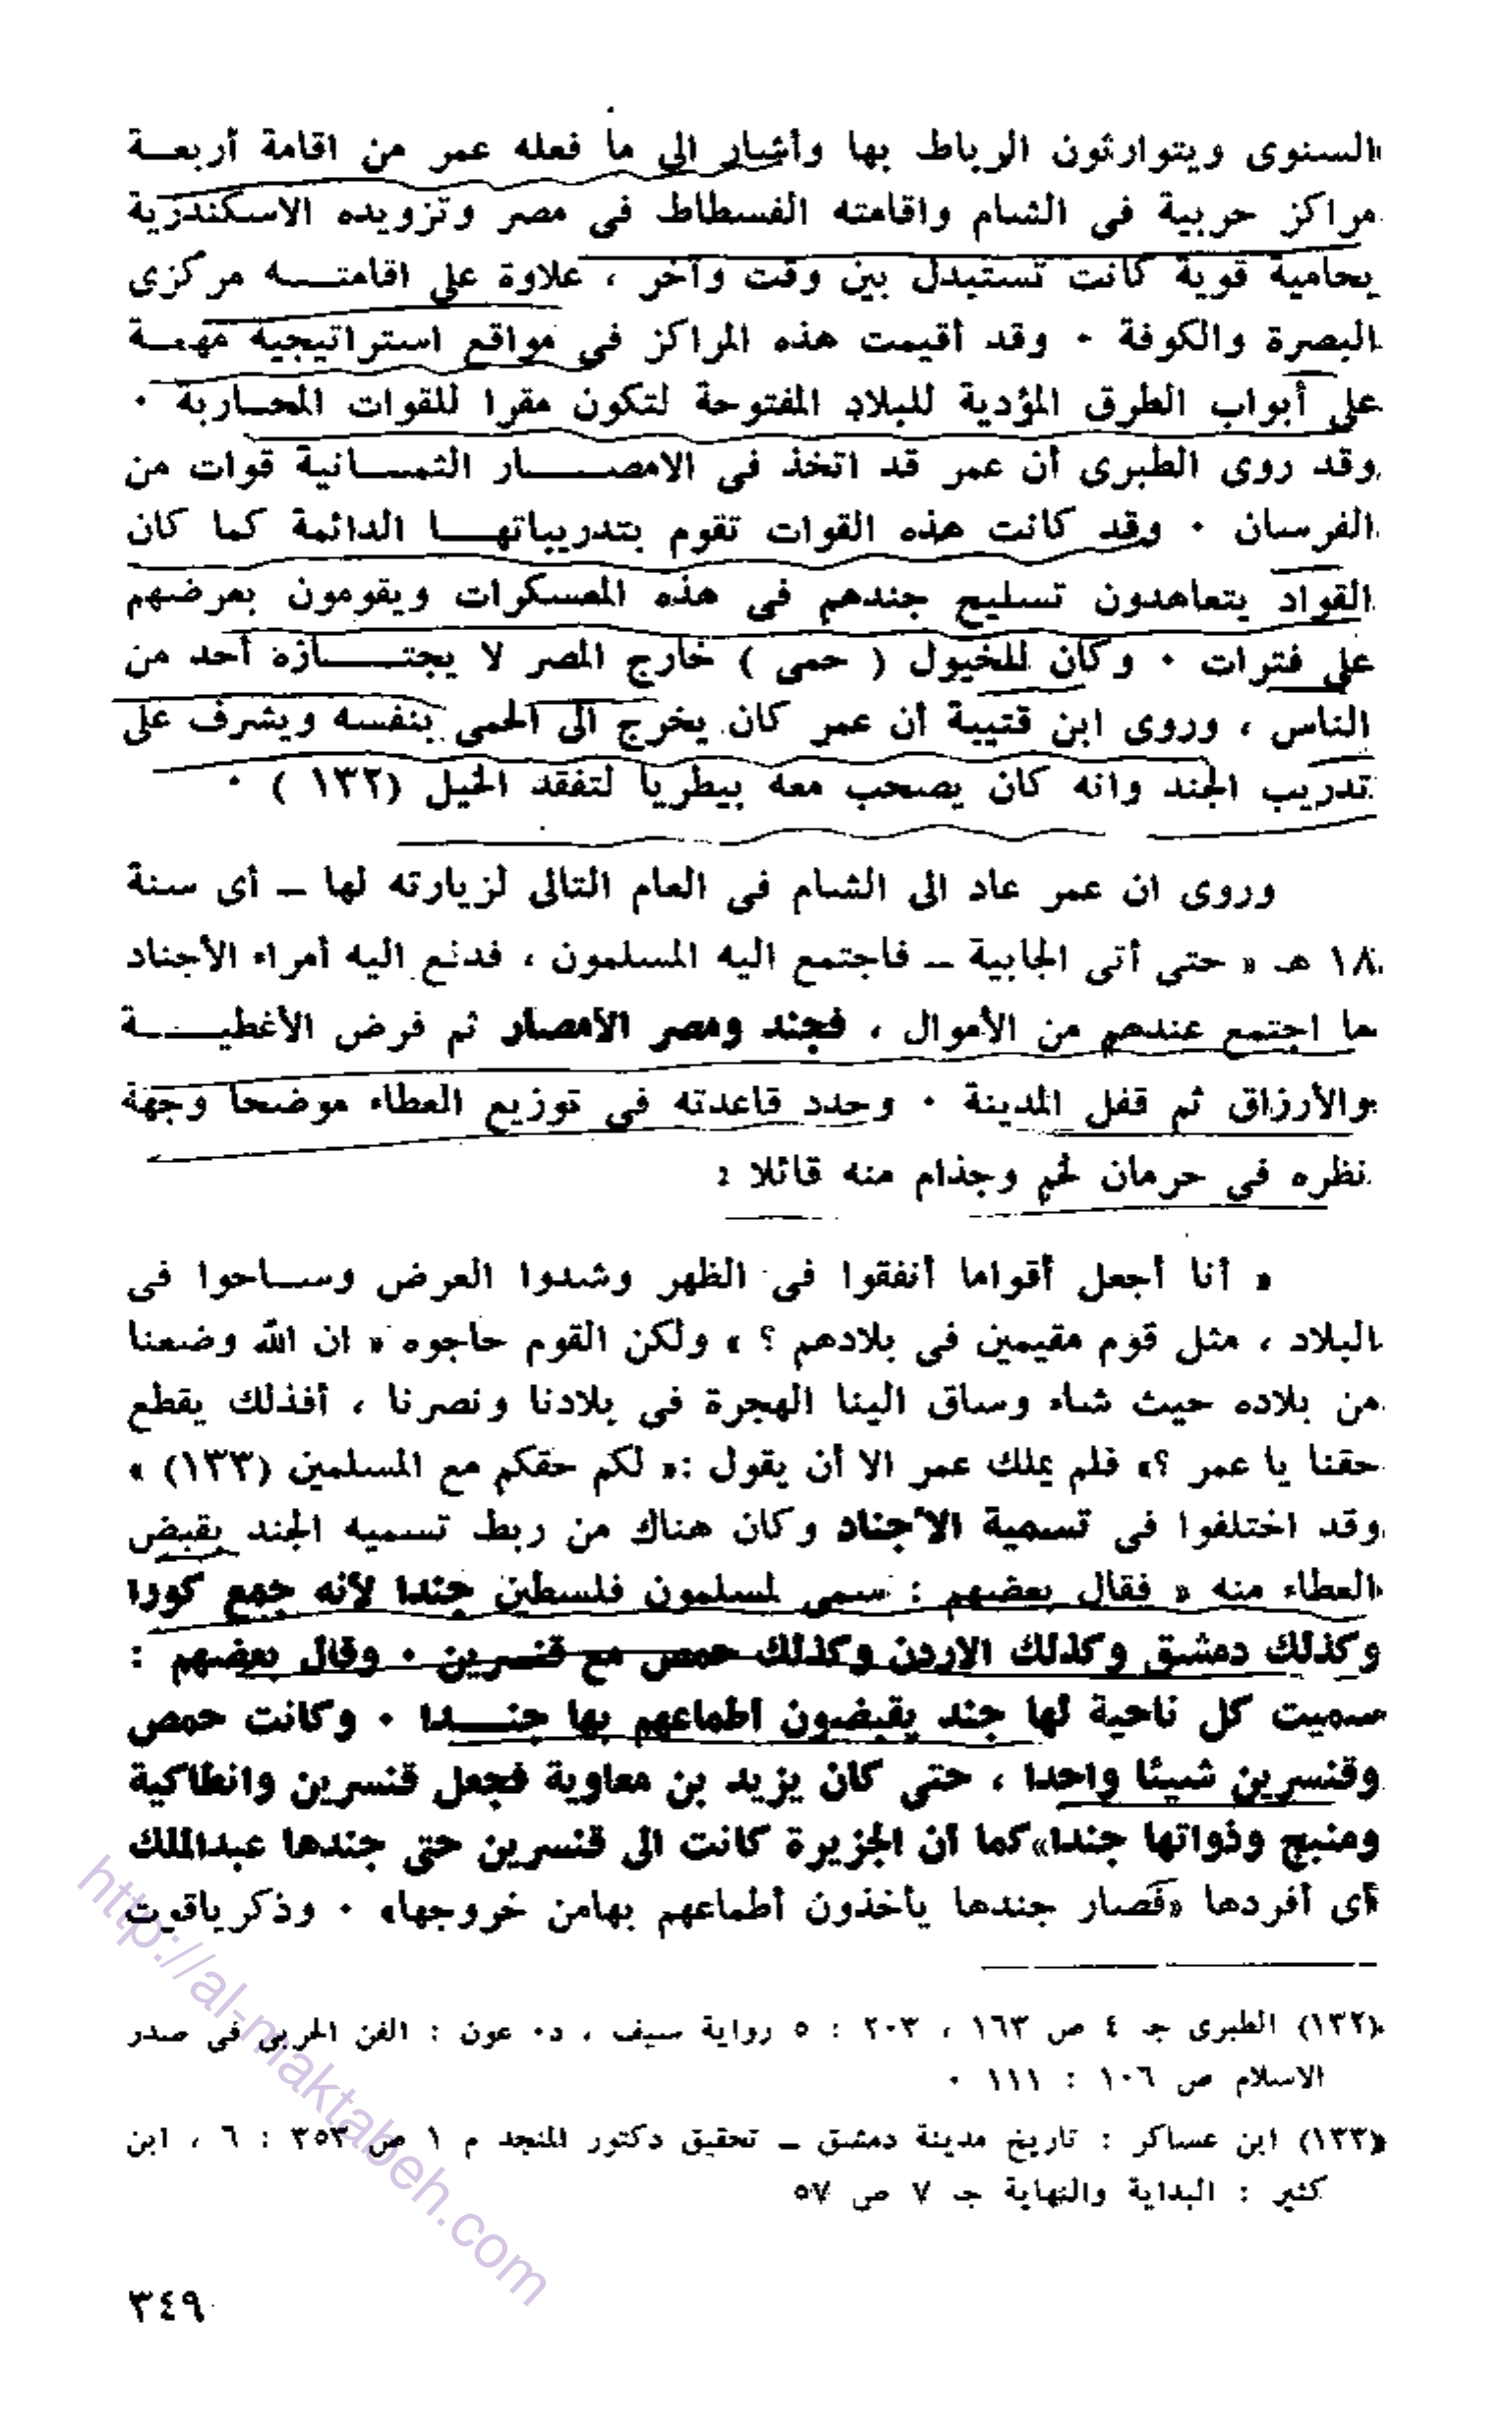 السنوى ويتوارثون الرباط بها وأشار الى ما فعله عمر من اقامة أربعة
مراكز حربية فى الشام واقامته الفسطاط فى مصر وتزويده الاسكندرية
بحامية قوية كانت تستبدل بين وقت وآخر ، علاوة على اقامته مركزى
البصرة والكوفة ٠ وقد أقيمت هذه المراكز في مواقع استراتيجية مهمة
على أبواب الطرق المؤدية للبلاد المفتوحة لتكون مقرا للقوات المحاربة ٠
وقد روى الطبرى أن عمر قد اتخذ فى الامصار الثمانية قوات من
الفرسان ٠ وقد كانت هذه القوات تقوم بتدريباتها الدائمة كما كان
القواد يتعاهدون تسليح جندهم فى هذه المعسكرات ويقومون بعرضهم
على فترات ٠ وكان للخيول ( حمى ) خارج المصر لا يجتازه أحد من
الناس ، وروى ابن قتيبة أن عمر كان يخرج الى الحمى بنفسه ويشرف على
تدريب الجند وانه كان يصحب معه بيطريا لتفقد الخيل (١٣٢ ) ٠
وروى ان عمر عاد الى الشام فى العام التالى لزيارته لها ــ أى سنة
١٨ هـ « حتى أتى الجابية ــ فاجتمع اليه المسلمون ، فدفع اليه أمراء الأجناد
ما اجتمع عندهم من الأموال ، فجند ومصر الأمصار ثم فرض الأغطية
والأرزاق ثم قفل المدينة ٠ وحدد قاعدته فى توزيع العطاء موضحا وجهة
نظره فى حرمان لخم وجذام منه قائلا :
« أنا أجعل أقواما أنفقوا فى الظهر وشدوا العرض وساحوا فى
البلاد ، مثل قوم مقيمين فى بلادهم ؟ » ولكن القوم حاجوه « ان الله وضعنا
من بلاده حيث شاء وساق الينا الهجرة فى بلادنا ونصرنا ، أفذلك يقطع
حقنا يا عمر ؟» فلم يملك عمر الا أن يقول :« لكم حقكم مع المسلمين (١٣٣) »
وقد اختلفوا فى تسمية الأجناد وكان هناك من ربط تسميه الجند بقبض
العطاء منه « فقال بعضهم : سمى لمسلمون فلسطين جندا لأنه جمع كورا
وكذلك دمشق وكذلك الاردن وكذلك حمص مع قنسرين ٠ وقال بعضهم :
سميت كل ناحية لها جند يقبضون اطماعهم بها جندا ٠ وكانت حمص
وقنسرين شيئا واحدا ، حتى كان يزيد بن معاوية فجعل قنسرين وانطاكية
ومنبج وذواتها جندا»كما أن الجزيرة كانت الى قنسرين حتى جندها عبدالملك
أى أفردها «فصار جندها يأخذون أطماعهم بهامن خروجها» ٠ وذكر ياقوت
(١٣٢) الطبرى جـ ٤ ص ١٦٣ ، ٢٠٣ : ٥ رواية سيف ، د٠ عون : الفن الحربى فى صدر
الاسلام ص ١٠٦ : ١١١ ٠
(١٣٣) ابن عساكر : تاريخ مدينة دمشق ــ تحقيق دكتور المنجد م ١ ص ٣٥٣ : ٦ ، ابن
كثير : البداية والنهاية جـ ٧ ص ٥٧
٣٤٩
http://al-maktabeh.com